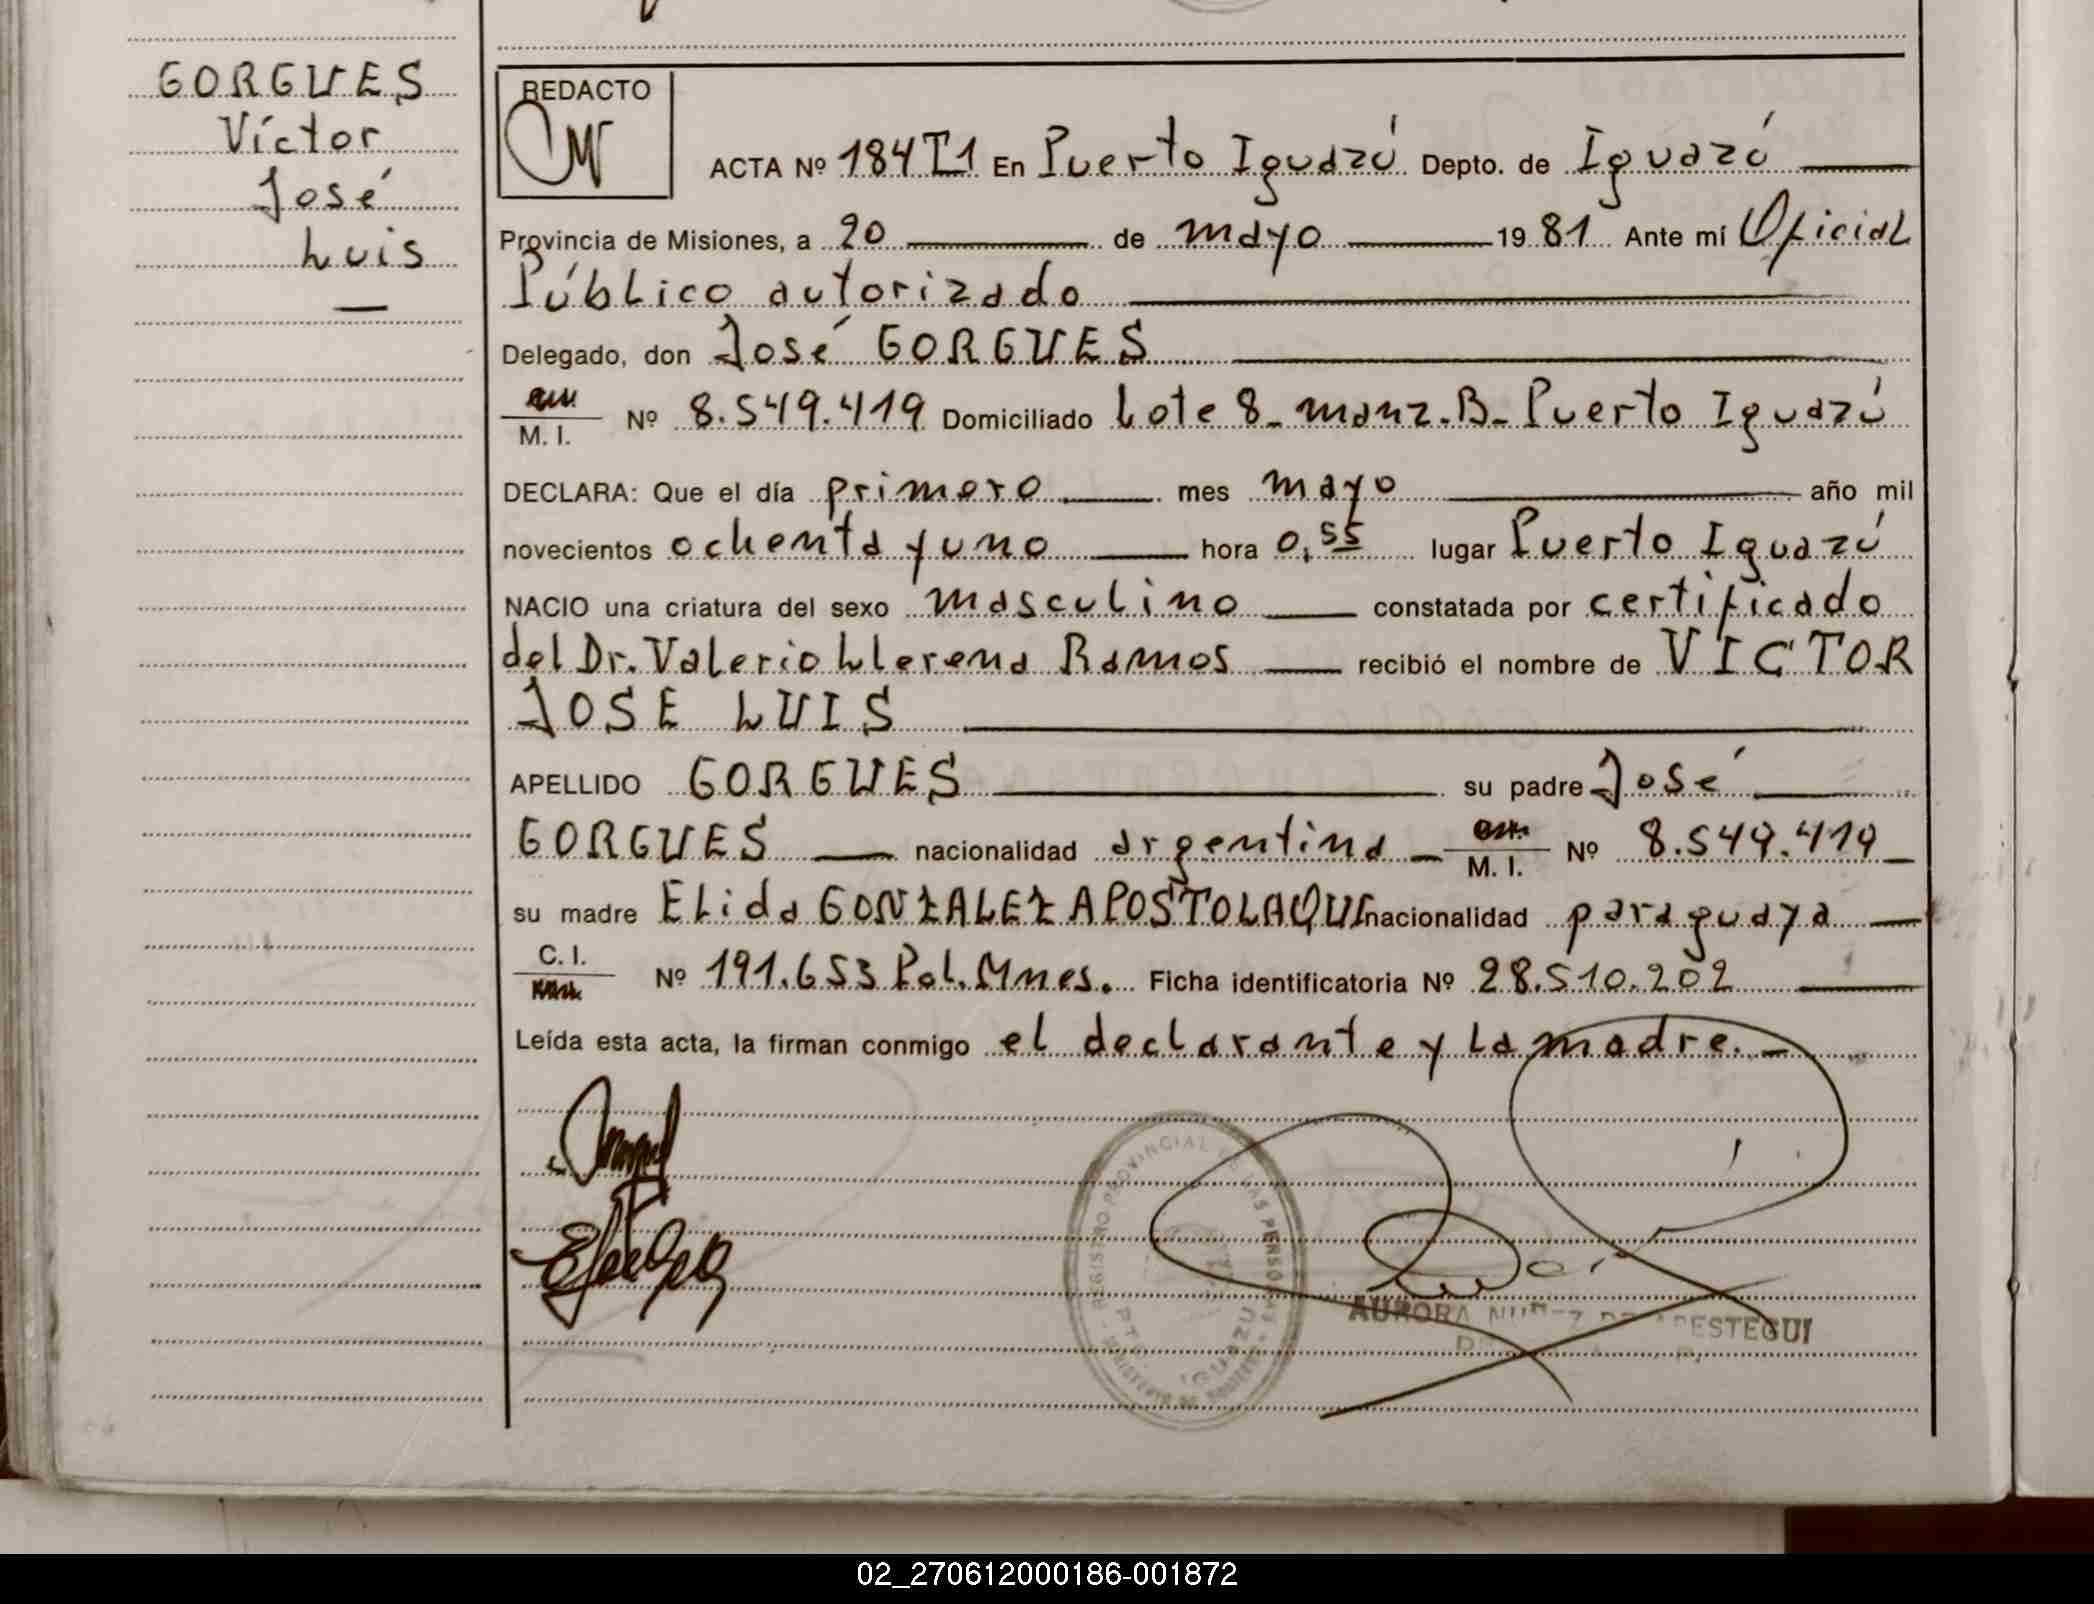 GORGUES
Víctor
José
Luis
REDACTO
ACTA Nº 184T1 En Puerto Iguazú Depto. de Iguazú
Provincia de Misiones, a 20 de mayo 1981 Ante mí Oficial
Público autorizado
Delegado, don José GORGUES
M. I. Nº 8.549.419 Domiciliado Lote 8_ manz.B_ Puerto Iguazú
DECLARA: Que el día primero mes mayo año mil
novecientos ochenta y uno hora 0,55 lugar Puerto Iguazú
NACIO una criatura del sexo masculino constatada por certificado
del Dr. Valerio Llerena Ramos recibió el nombre de VICTOR
JOSE LUIS
APELLIDO GORGUES su padre José
GORGUES nacionalidad argentina M. I. Nº 8.549.419
su madre Elida GONZALEZ APOSTOLAQUI nacionalidad paraguaya
C. I. Nº 191.653 Pol. Mnes. Ficha identificatoria Nº 28.510.202
Leída esta acta, la firman conmigo el declarante y la madre._
REGISTRO PROVINCIAL DE LAS PERSONAS
PTO. IGUAZU
AURORA
02_270612000186-001872